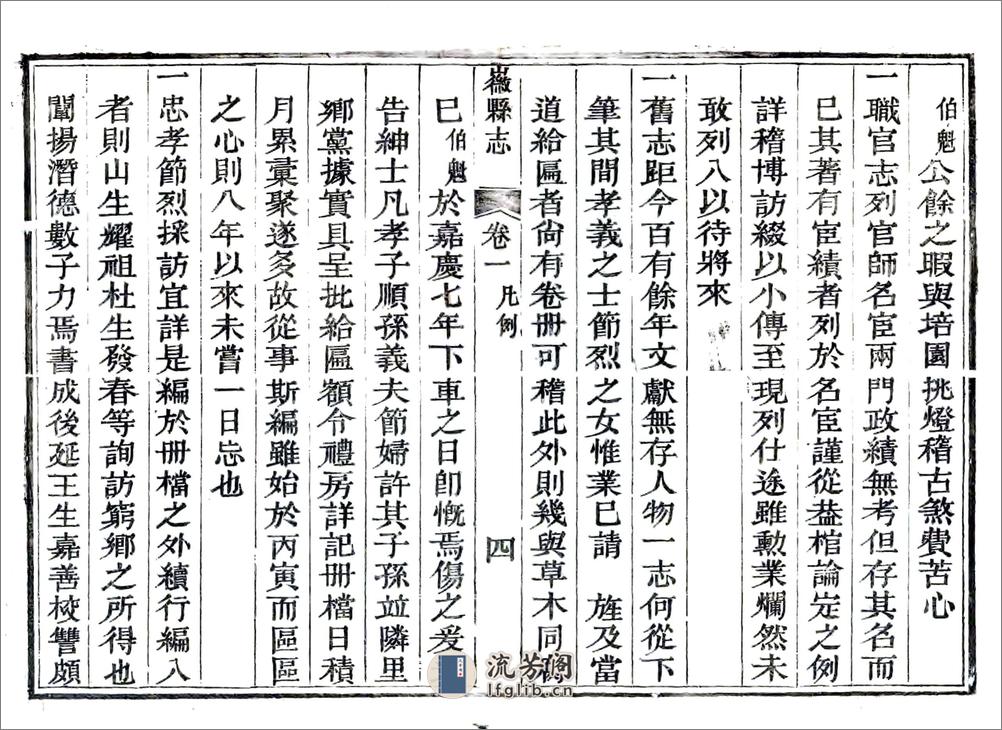 伯魁公餘之暇與培園挑燈稽古煞費苦心
一職官志列官師名宦兩門政績無考但存其名而
已其著有宦績者列於名宦謹從葢棺論定之例
詳稽博訪綴以小傳至現列仕途雖勳業爛然未
敢列入以待將來
一舊志距今百有餘年文獻無存人物一志何從下
筆其間孝義之士節烈之女惟業已請 旌及當
道給匾者尙有卷冊可稽此外則幾與草木同
嶶縣志 卷一 凡例 四
已伯魁於嘉慶七年下車之日卽慨焉傷之爰
告紳士凡孝子順孫義夫節婦許其子孫竝隣里
鄉黨據實具呈批給匾額令禮房詳記冊檔日積
月累彙聚遂多故從事斯編雖始於丙寅而區區
之心則八年以來未嘗一日忘也
一忠孝節烈採訪宜詳是編於冊檔之外續行編入
者則山生耀祖杜生發春等詢訪窮鄉之所得也
闡揚潛德數子力焉書成後延王生嘉善校讐頗
流芳閣
lfglib.cn